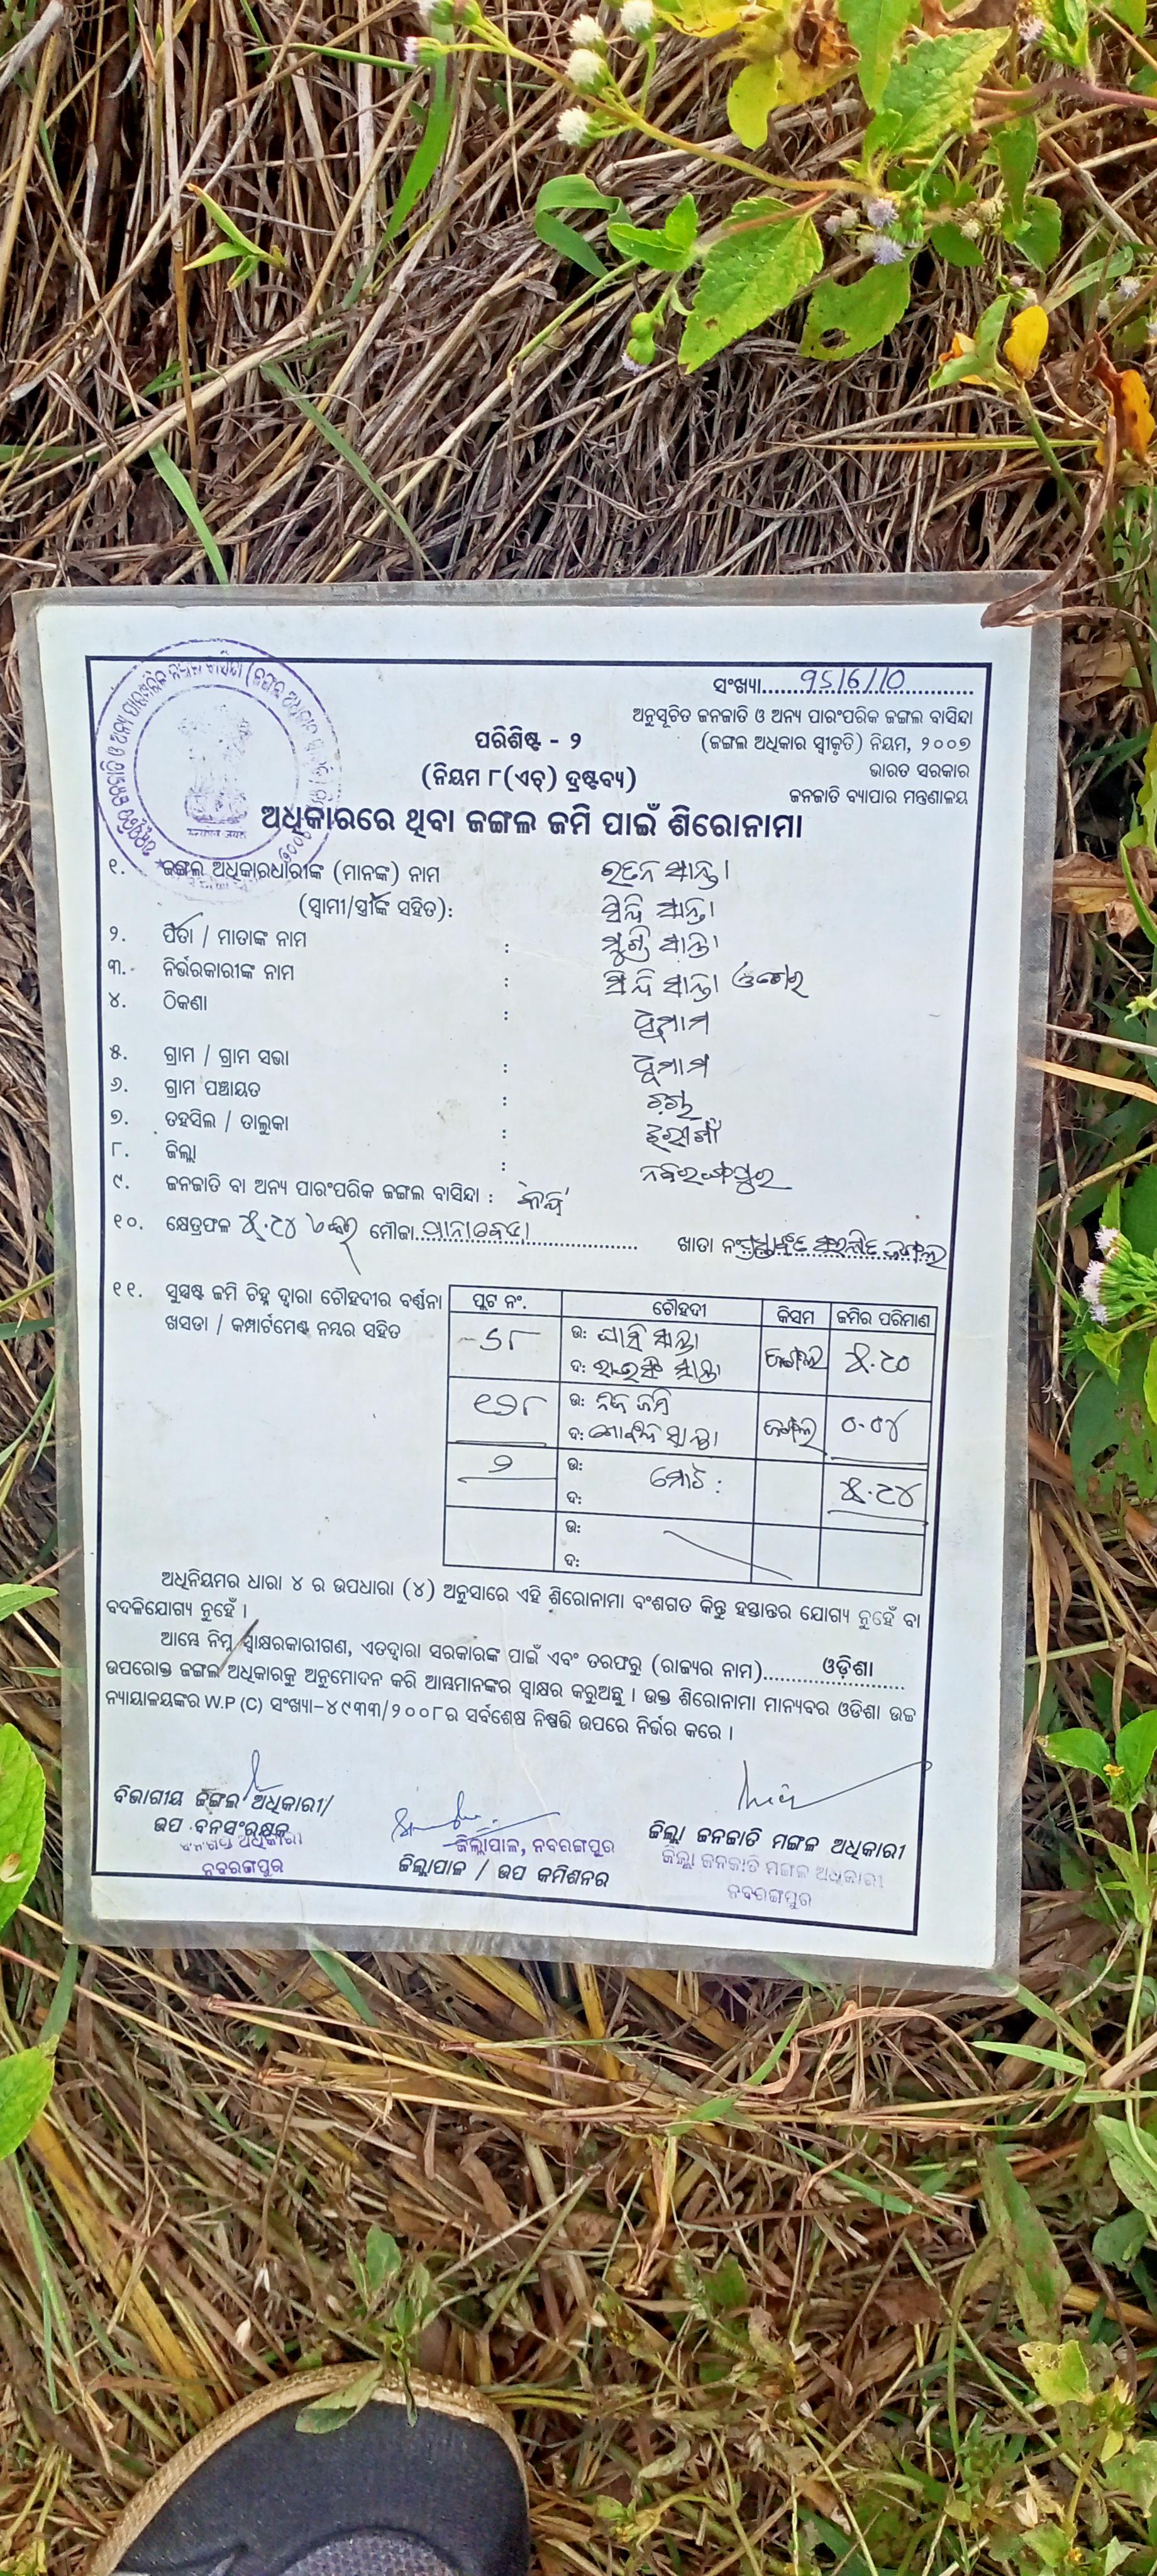 ସଂଖ୍ୟା 9516/10
ଅନୁସୂଚିତ ଜନଜାତି ଓ ଅନ୍ୟ ପାରଂପରିକ ଜଙ୍ଗଲ ବାସିନ୍ଦା
(ଜଙ୍ଗଲ ଅଧିକାର ସ୍ୱୀକୃତି) ନିୟମ, ୨୦୦୭
ଭାରତ ସରକାର
ଜନଜାତି ବ୍ୟାପାର ମନ୍ତ୍ରଣାଳୟ
ପରିଶିଷ୍ଟ - ୨
(ନିୟମ ୮(ଏଚ୍) ଦ୍ରଷ୍ଟବ୍ୟ)
ଅଧିକାରରେ ଥିବା ଜଙ୍ଗଲ ଜମି ପାଇଁ ଶିରୋନାମା
୧. ଜଙ୍ଗଲ ଅଧିକାରଧାରୀଙ୍କ (ମାନଙ୍କ) ନାମ ରତନ ସାନ୍ତା
(ସ୍ୱାମୀ/ସ୍ତ୍ରୀଙ୍କ ସହିତ): ସାନ୍ତା
୨. ପିତା / ମାତାଙ୍କ ନାମ : ସାନ୍ତା
୩. ନିର୍ଭରକାରୀଙ୍କ ନାମ : ସାନ୍ତା
୪. ଠିକଣା :
୫. ଗ୍ରାମ / ଗ୍ରାମ ସଭା :
୬. ଗ୍ରାମ ପଞ୍ଚାୟତ :
୭. ତହସିଲ / ତାଲୁକା :
୮. ଜିଲ୍ଲା : ନବରଙ୍ଗପୁର
୯. ଜନଜାତି ବା ଅନ୍ୟ ପାରଂପରିକ ଜଙ୍ଗଲ ବାସିନ୍ଦା :
୧୦. କ୍ଷେତ୍ରଫଳ ୫.୨୪ ମୌଜା ଖାତା ନଂ
୧୧. ସୁସ୍ପଷ୍ଟ ଜମି ଚିହ୍ନ ଦ୍ୱାରା ଚୌହଦୀର ବର୍ଣ୍ଣନା
ଖସଡା / କମ୍ପାର୍ଟମେଣ୍ଟ ନମ୍ବର ସହିତ
ପ୍ଲଟ ନଂ. ଚୌହଦୀ କିସମ ଜମିର ପରିମାଣ
ଉ: ସାନ୍ତା ଜଙ୍ଗଲ ୫.୨୦
ଦ: ସାନ୍ତା
ଉ: ନିଜ ଜମି ଜଙ୍ଗଲ ୦.୦୪
ଦ: ସାନ୍ତା
୨ ଉ: ମୋଟ : ୫.୨୪
ଦ:
ଉ:
ଦ:
ଅଧିନିୟମର ଧାରା ୪ ର ଉପଧାରା (୪) ଅନୁସାରେ ଏହି ଶିରୋନାମା ବଂଶଗତ କିନ୍ତୁ ହସ୍ତାନ୍ତର ଯୋଗ୍ୟ ନୁହେଁ ବା
ବଦଳିଯୋଗ୍ୟ ନୁହେଁ ।
ଆମ୍ଭେ ନିମ୍ନ ସ୍ୱାକ୍ଷରକାରୀଗଣ, ଏତଦ୍ୱାରା ସରକାରଙ୍କ ପାଇଁ ଏବଂ ତରଫରୁ (ରାଜ୍ୟର ନାମ) ଓଡ଼ିଶା
ଉପରୋକ୍ତ ଜଙ୍ଗଲ ଅଧିକାରକୁ ଅନୁମୋଦନ କରି ଆମ୍ଭମାନଙ୍କର ସ୍ୱାକ୍ଷର କରୁଅଛୁ । ଉକ୍ତ ଶିରୋନାମା ମାନ୍ୟବର ଓଡିଶା ଉଚ୍ଚ
ନ୍ୟାୟାଳୟଙ୍କର W.P (C) ସଂଖ୍ୟା-୪୯୩୩/୨୦୦୮ର ସର୍ବଶେଷ ନିଷ୍ପତ୍ତି ଉପରେ ନିର୍ଭର କରେ ।
ବିଭାଗୀୟ ଜଙ୍ଗଲ ଅଧିକାରୀ/
ଉପ ବନସଂରକ୍ଷକ
ବନଖଣ୍ଡ ଅଧିକାରୀ
ନବରଙ୍ଗପୁର
ଜିଲ୍ଲାପାଳ, ନବରଙ୍ଗପୁର
ଜିଲ୍ଲାପାଳ / ଉପ କମିଶନର
ଜିଲ୍ଲା ଜନଜାତି ମଙ୍ଗଳ ଅଧିକାରୀ
ଜିଲ୍ଲା ଜନଜାତି ମଙ୍ଗଳ ଅଧିକାରୀ
ନବରଙ୍ଗପୁର